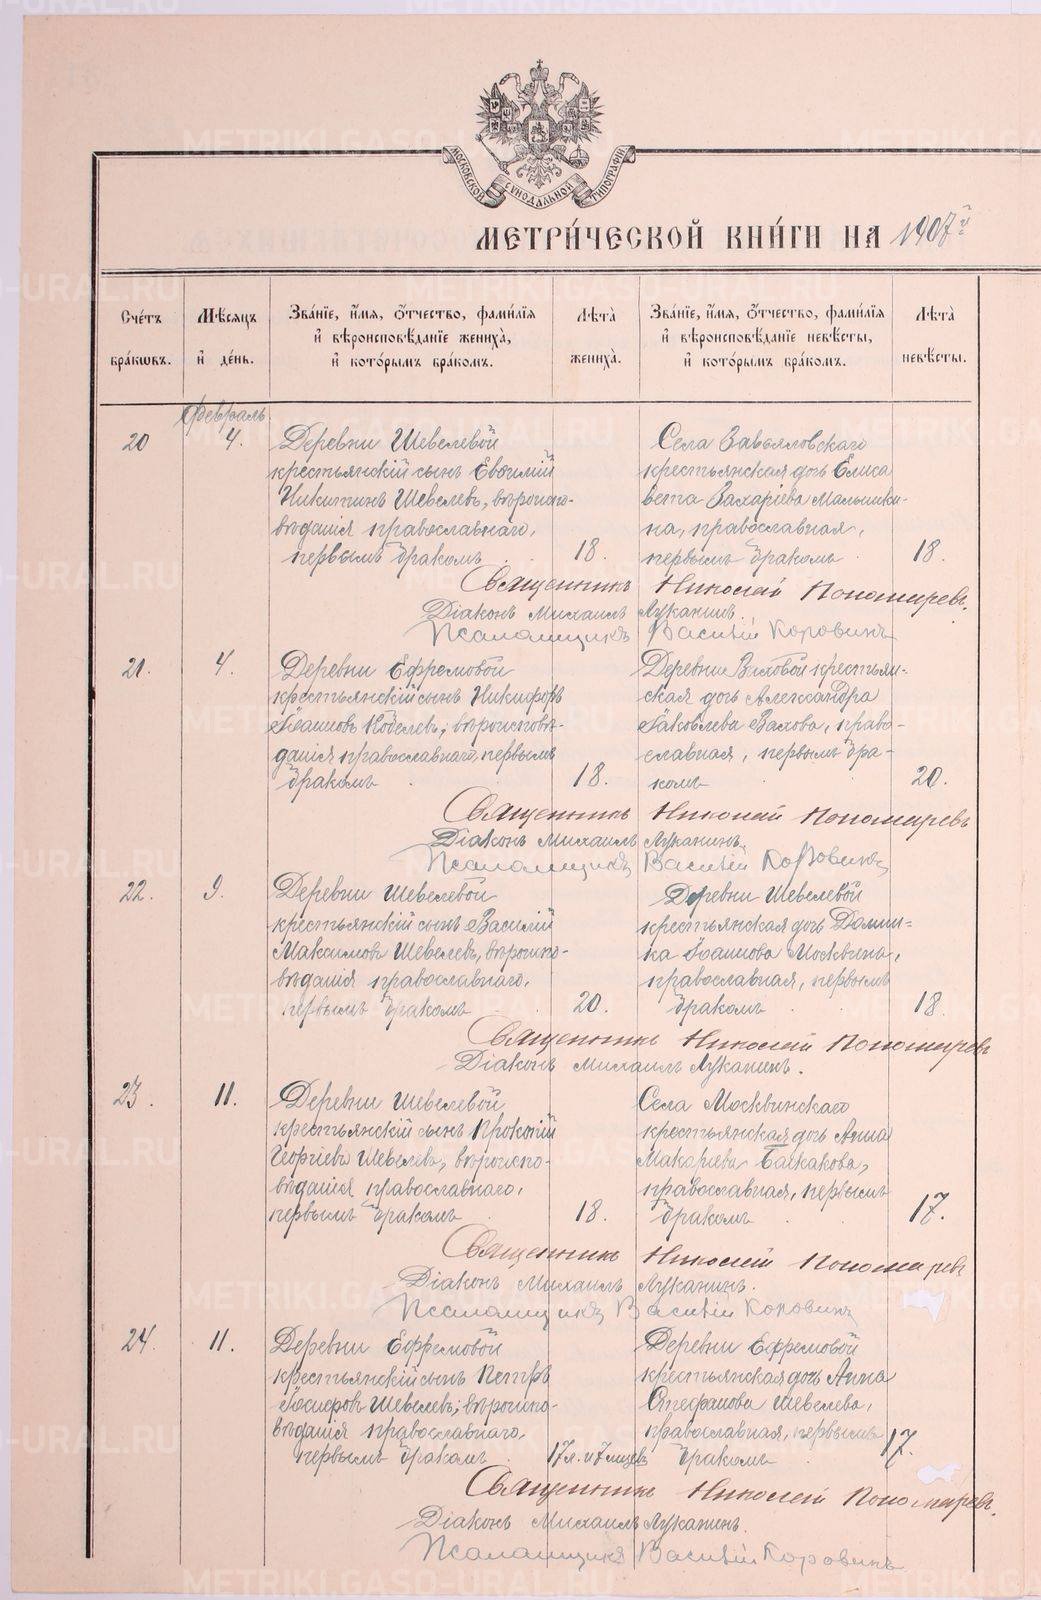 МОСКОВСКОЙ СѴНОДАЛЬНОЙ ТИПОГРАФІИ
МЕТРИ́ЧЕСКОЙ КНИ́ГИ НА 1907й г.
Сче́тъ бра́кѡвъ.
Мѣ́сяцъ и҆ де́нь.
Зва́нїе, и҆́мѧ, ѻ҆́тчество, фами́лїѧ
и҆ вѣроисповѣ́данїе жениха̀,
и҆ кото́рымъ бра́комъ.
Лѣ́та̀ жениха̀.
Зва́нїе, и҆́мѧ, ѻ҆́тчество, фами́лїѧ
и҆ вѣроисповѣ́данїе невѣ́сты,
и҆ кото́рымъ бра́комъ.
Лѣ́та̀ невѣ́сты.
Февраль
20 4.
Деревни Шевелевой
крестьянскій сынъ Евѳимій
Никитинъ Шевелевъ, вѣроиспо-
вѣданія православнаго,
первымъ бракомъ
18.
Села Завьяловскаго
крестьянская дочь Елиса
вета Захаріева Малышки-
на, православная,
первымъ бракомъ
18.
Священникъ Николай Пономаревъ.
Діаконъ Михаилъ Луканинъ.
Псаломщикъ Василій Коровинъ
21. 4.
Деревни Ефремовой
крестьянскій сынъ Никифоръ
Іоанновъ Кобелевъ, вѣроисповѣ-
данія православнаго, первымъ
бракомъ
18.
Деревни крестьян-
ская дочь Александра
Іаковлева Вахова, право-
славная, первымъ бра-
комъ
20.
Священникъ Николай Пономаревъ
Діаконъ Михаилъ Луканинъ.
Псаломщикъ Василій Коровинъ
22. 9.
Деревни Шевелевой
крестьянскій сынъ Василій
Максимовъ Шевелевъ, вѣроиспо-
вѣданія православнаго,
первымъ бракомъ
20.
Деревни Шевелевой
крестьянская дочь Домни-
ка Іоаннова Москвина,
православная, первымъ
бракомъ
18.
Священникъ Николай Пономаревъ
Діаконъ Михаилъ Луканинъ.
23. 11.
Деревни Шевелевой
крестьянскій сынъ Прокопій
Георгіевъ Шевелевъ, вѣроиспо-
вѣданія православнаго,
первымъ бракомъ
18.
Села Москвинскаго
крестьянская дочь Анна
Макаріева Баскакова,
православная, первымъ
бракомъ
17.
Священникъ Николай Пономаревъ
Діаконъ Михаилъ Луканинъ.
Псаломщикъ Василій Коровинъ
24. 11.
Деревни Ефремовой
крестьянскій сынъ Петръ
Іосифовъ Шевелевъ, вѣроиспо-
вѣданія православнаго,
первымъ бракомъ
17 л. и 7 мцевъ
Деревни Ефремовой
крестьянская дочь Анна
Стефанова Шевелева,
православная, первымъ
бракомъ
17.
Священникъ Николай Пономаревъ.
Діаконъ Михаилъ Луканинъ.
Псаломщикъ Василій Коровинъ
METRIKI.GASO-URAL.RU